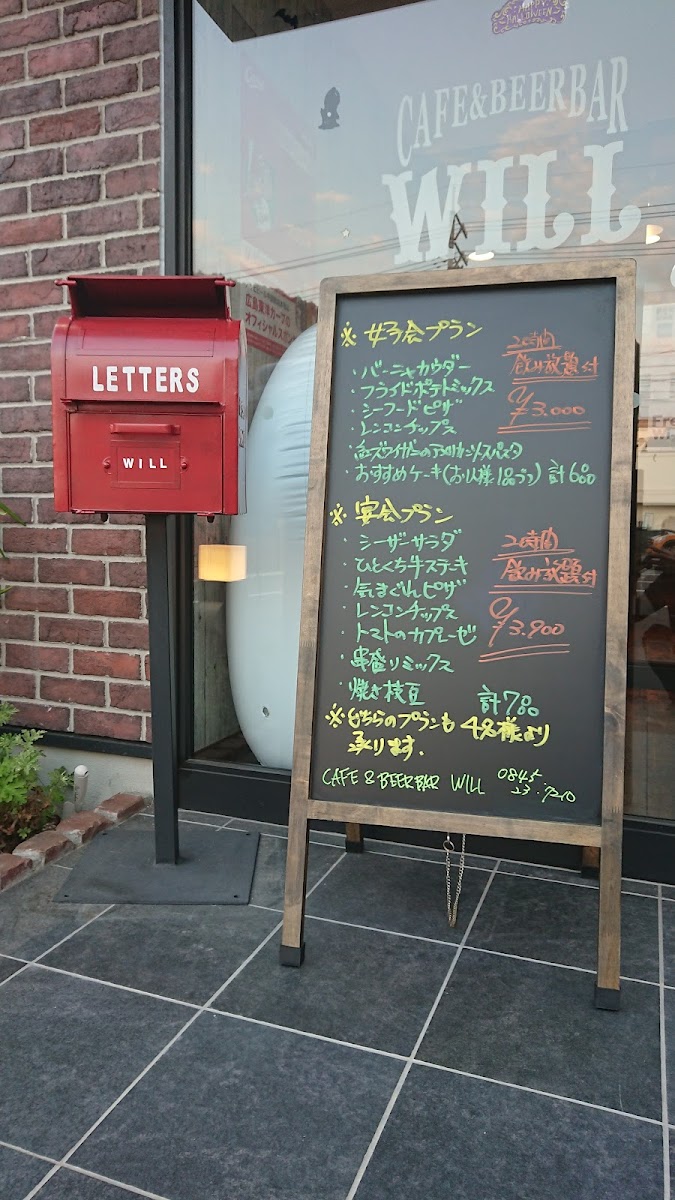 HAPPY HALLOWEEN
CAFE&BEERBAR
WILL
広島東洋カープの
オフィシャルスポ
LETTERS
WILL
※女子会プラン
・バーニャカウダー
・フライドポテトミックス
・シーフードピザ
・レンコンチップス
スパスタ
・おすすめケーキ(お1人様1品づつ) 計6品
2時間
飲み放題付
¥3.000
※宴会プラン
・シーザーサラダ
・ひとくち牛ステーキ
・気まぐれピザ
・レンコンチップス
・トマトのカプレーゼ
・串盛りミックス
・焼き枝豆 計7品
2時間
飲み放題付
¥3.900
※どちらのプランも 4名様より
承ります.
CAFE & BEERBAR WILL 0845.
23.7210